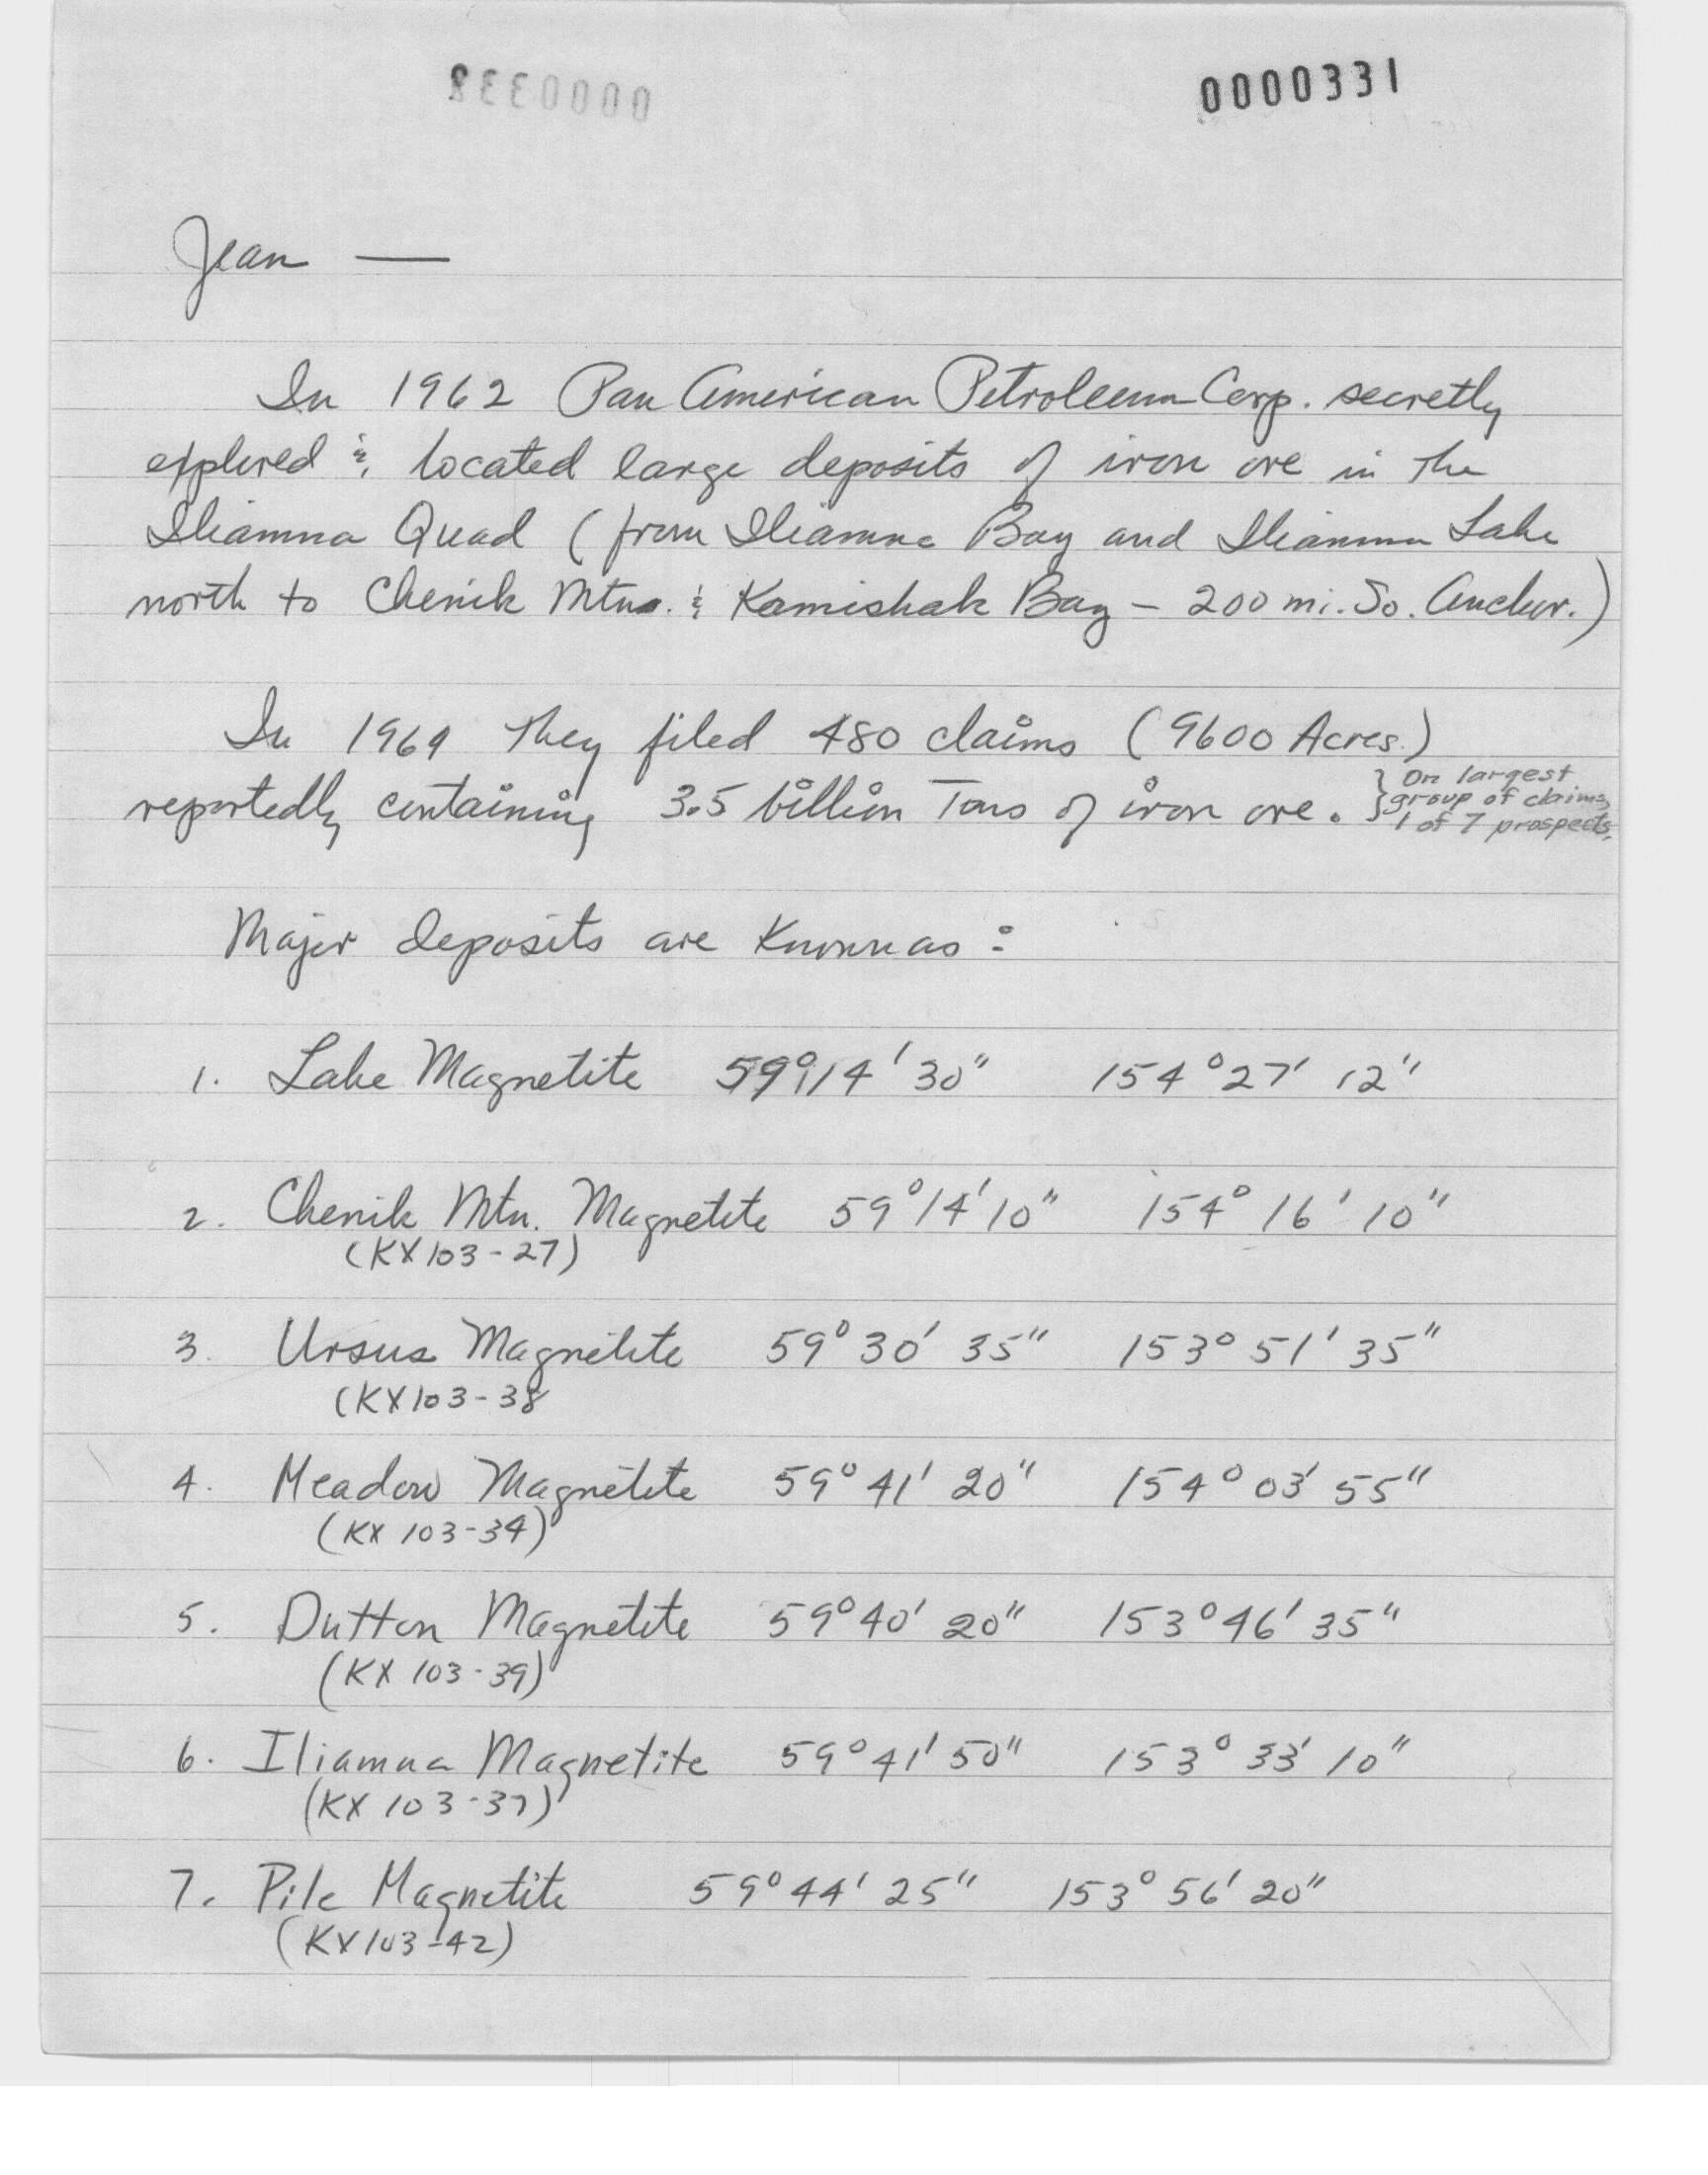 0000338
0000331
Jean —
In 1962 Pan American Petroleum Corp. secretly
explored & located large deposits of iron ore in the
Iliamna Quad (from Iliamna Bay and Iliamna Lake
north to Chenik Mtns. & Kamishak Bay – 200 mi. So. Anchor.)
In 1964 they filed 480 claims (9600 Acres.)
reportedly containing 3.5 billion Tons of iron ore. } On largest
group of claims,
1 of 7 prospects.
Major deposits are Known as:
1. Lake Magnetite 59° 14' 30" 154° 27' 12"
2. Chenik Mtn. Magnetite 59° 14' 10" 154° 16' 10"
(KX 103-27)
3. Ursus Magnetite 59° 30' 35" 153° 51' 35"
(KX 103-38
4. Meadow Magnetite 59° 41' 20" 154° 03' 55"
(KX 103-34)
5. Dutton Magnetite 59° 40' 20" 153° 46' 35"
(KX 103-39)
6. Iliamna Magnetite 59° 41' 50" 153° 33' 10"
(KX 103-37)
7. Pile Magnetite 59° 44' 25" 153° 56' 20"
(KX 103-42)